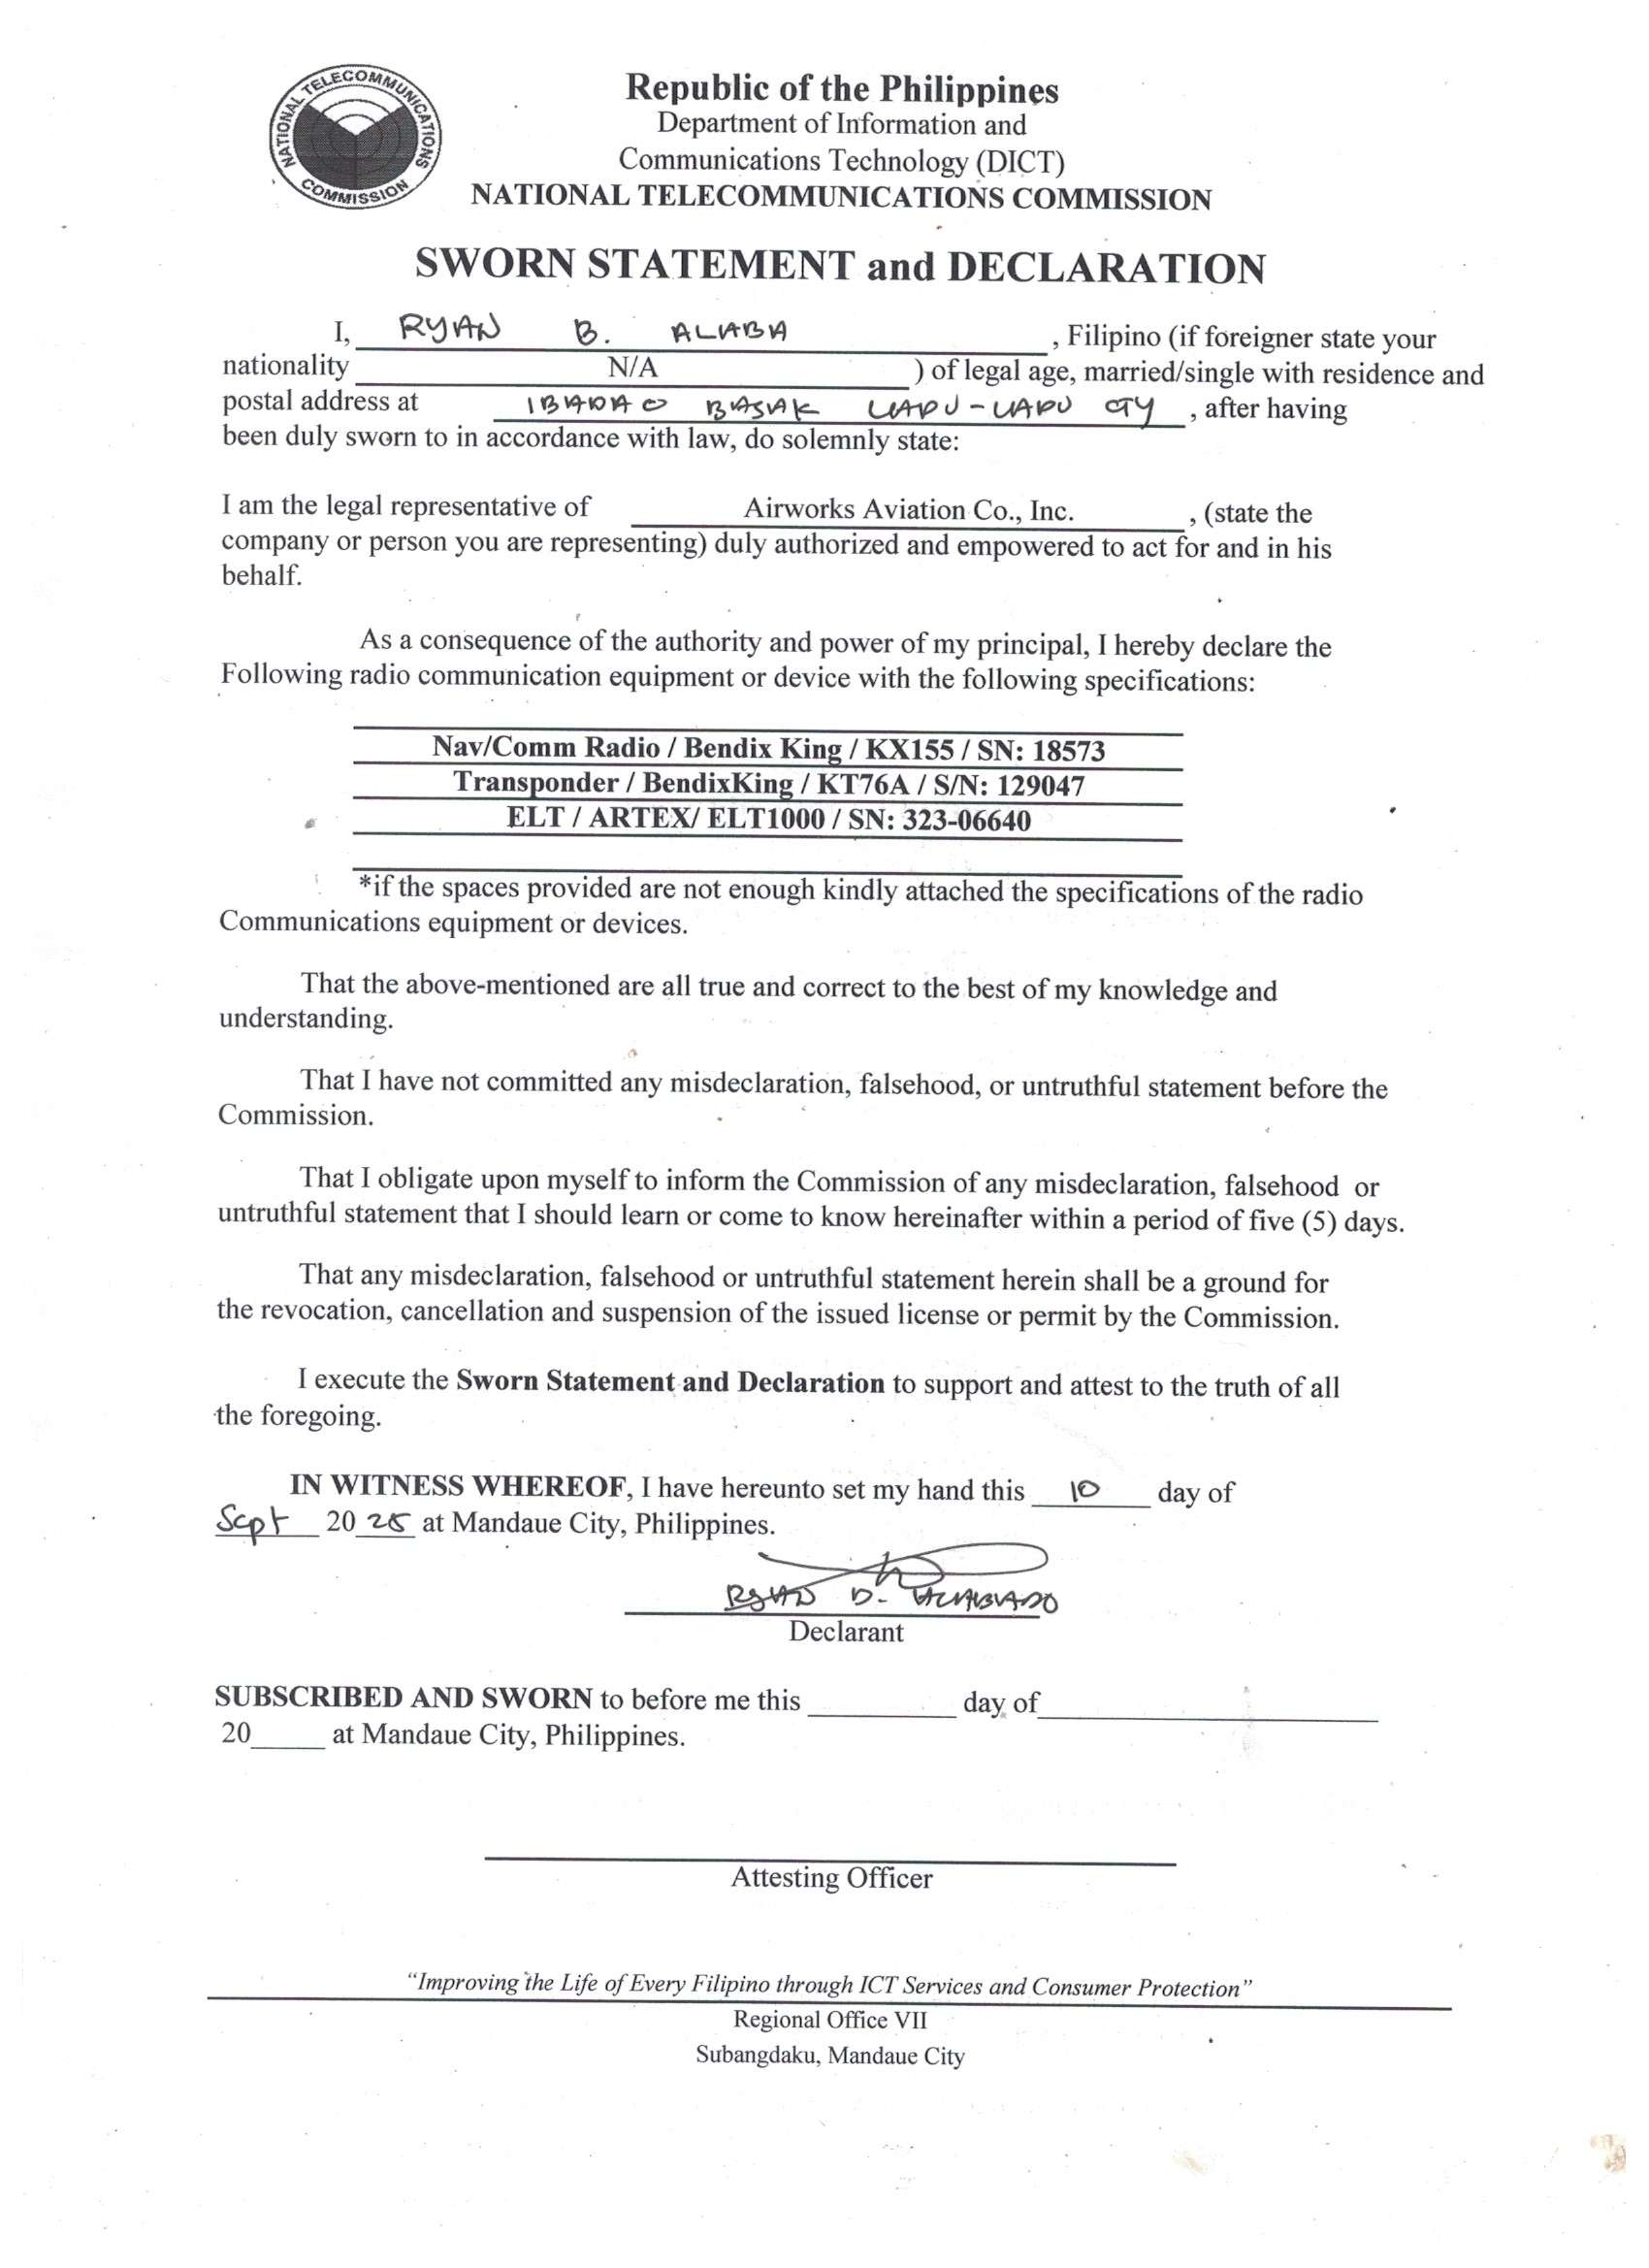 NATIONAL TELECOMMUNICATIONS COMMISSION
Republic of the Philippines
Department of Information and
Communications Technology (DICT)
NATIONAL TELECOMMUNICATIONS COMMISSION
SWORN STATEMENT and DECLARATION
I, RYAN B. ALABA , Filipino (if foreigner state your
nationality N/A ) of legal age, married/single with residence and
postal address at BASAK LAPU-LAPU CTY , after having
been duly sworn to in accordance with law, do solemnly state:
I am the legal representative of Airworks Aviation Co., Inc. , (state the
company or person you are representing) duly authorized and empowered to act for and in his
behalf.
As a consequence of the authority and power of my principal, I hereby declare the
Following radio communication equipment or device with the following specifications:
Nav/Comm Radio / Bendix King / KX155 / SN: 18573
Transponder / BendixKing / KT76A / S/N: 129047
ELT / ARTEX/ ELT1000 / SN: 323-06640
*if the spaces provided are not enough kindly attached the specifications of the radio
Communications equipment or devices.
That the above-mentioned are all true and correct to the best of my knowledge and
understanding.
That I have not committed any misdeclaration, falsehood, or untruthful statement before the
Commission.
That I obligate upon myself to inform the Commission of any misdeclaration, falsehood or
untruthful statement that I should learn or come to know hereinafter within a period of five (5) days.
That any misdeclaration, falsehood or untruthful statement herein shall be a ground for
the revocation, cancellation and suspension of the issued license or permit by the Commission.
I execute the Sworn Statement and Declaration to support and attest to the truth of all
the foregoing.
IN WITNESS WHEREOF, I have hereunto set my hand this 10 day of
Sept 20 25 at Mandaue City, Philippines.
RYAN
Declarant
SUBSCRIBED AND SWORN to before me this ____ day of ____
20____ at Mandaue City, Philippines.
Attesting Officer
“Improving the Life of Every Filipino through ICT Services and Consumer Protection”
Regional Office VII
Subangdaku, Mandaue City